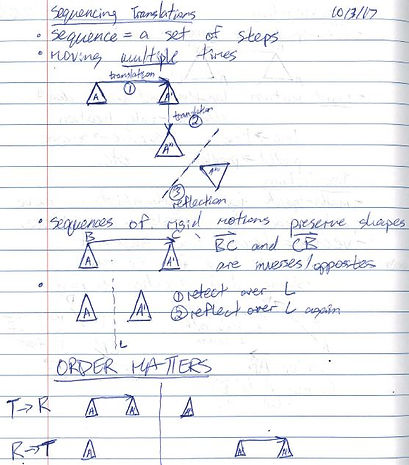 Sequencing Translations 10/3/17
• sequence = a set of steps
• Moving multiple times
translation
①
A A'
translation
②
A''
A'''
③
reflection
• sequences of rigid motions preserve shapes
B C BC and CB
A A' are inverses/opposites
• A A' ① reflect over L
② reflect over L again
L
ORDER MATTERS
T→R A A A
R→T A A A